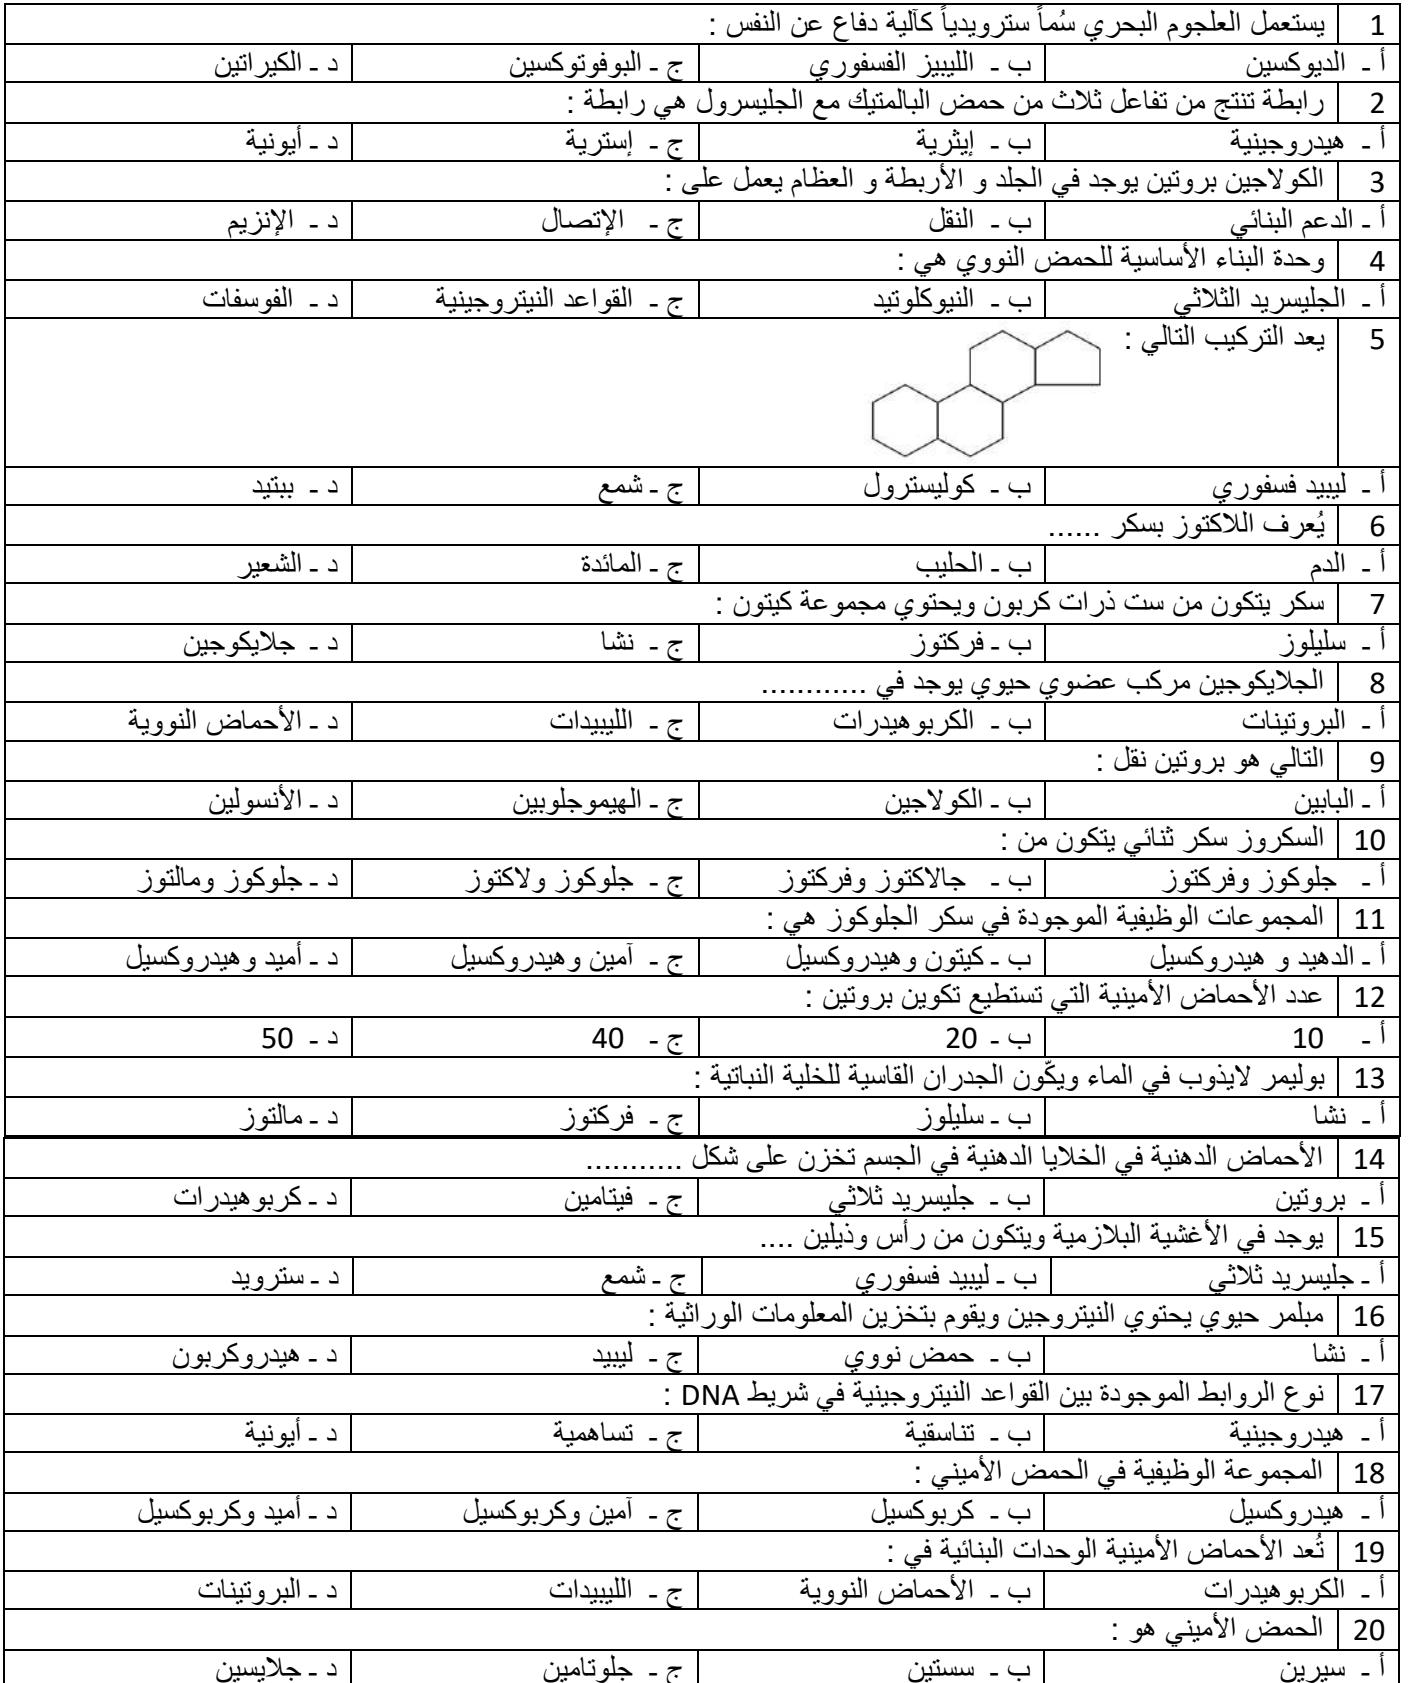 1 يستعمل العلجوم البحري سُماً سترويدياً كآلية دفاع عن النفس :
أ ـ الديوكسين ب ـ الليبيز الفسفوري ج ـ البوفوتوكسين د ـ الكيراتين
2 رابطة تنتج من تفاعل ثلاث من حمض البالمتيك مع الجليسرول هي رابطة :
أ ـ هيدروجينية ب ـ إيثرية ج ـ إسترية د ـ أيونية
3 الكولاجين بروتين يوجد في الجلد و الأربطة و العظام يعمل على :
أ ـ الدعم البنائي ب ـ النقل ج ـ الإتصال د ـ الإنزيم
4 وحدة البناء الأساسية للحمض النووي هي :
أ ـ الجليسريد الثلاثي ب ـ النيوكلوتيد ج ـ القواعد النيتروجينية د ـ الفوسفات
5 يعد التركيب التالي :
أ ـ ليبيد فسفوري ب ـ كوليسترول ج ـ شمع د ـ ببتيد
6 يُعرف اللاكتوز بسكر ......
أ ـ الدم ب ـ الحليب ج ـ المائدة د ـ الشعير
7 سكر يتكون من ست ذرات كربون ويحتوي مجموعة كيتون :
أ ـ سليلوز ب ـ فركتوز ج ـ نشا د ـ جلايكوجين
8 الجلايكوجين مركب عضوي حيوي يوجد في ............
أ ـ البروتينات ب ـ الكربوهيدرات ج ـ الليبيدات د ـ الأحماض النووية
9 التالي هو بروتين نقل :
أ ـ البابين ب ـ الكولاجين ج ـ الهيموجلوبين د ـ الأنسولين
10 السكروز سكر ثنائي يتكون من :
أ ـ جلوكوز وفركتوز ب ـ جالاكتوز وفركتوز ج ـ جلوكوز ولاكتوز د ـ جلوكوز ومالتوز
11 المجموعات الوظيفية الموجودة في سكر الجلوكوز هي :
أ ـ الدهيد و هيدروكسيل ب ـ كيتون وهيدروكسيل ج ـ آمين وهيدروكسيل د ـ أميد وهيدروكسيل
12 عدد الأحماض الأمينية التي تستطيع تكوين بروتين :
أ ـ 10 ب ـ 20 ج ـ 40 د ـ 50
13 بوليمر لايذوب في الماء ويكّون الجدران القاسية للخلية النباتية :
أ ـ نشا ب ـ سليلوز ج ـ فركتوز د ـ مالتوز
14 الأحماض الدهنية في الخلايا الدهنية في الجسم تخزن على شكل ...........
أ ـ بروتين ب ـ جليسريد ثلاثي ج ـ فيتامين د ـ كربوهيدرات
15 يوجد في الأغشية البلازمية ويتكون من رأس وذيلين ....
أ ـ جليسريد ثلاثي ب ـ ليبيد فسفوري ج ـ شمع د ـ سترويد
16 مبلمر حيوي يحتوي النيتروجين ويقوم بتخزين المعلومات الوراثية :
أ ـ نشا ب ـ حمض نووي ج ـ ليبيد د ـ هيدروكربون
17 نوع الروابط الموجودة بين القواعد النيتروجينية في شريط DNA :
أ ـ هيدروجينية ب ـ تناسقية ج ـ تساهمية د ـ أيونية
18 المجموعة الوظيفية في الحمض الأميني :
أ ـ هيدروكسيل ب ـ كربوكسيل ج ـ آمين وكربوكسيل د ـ أميد وكربوكسيل
19 تُعد الأحماض الأمينية الوحدات البنائية في :
أ ـ الكربوهيدرات ب ـ الأحماض النووية ج ـ الليبيدات د ـ البروتينات
20 الحمض الأميني هو :
أ ـ سيرين ب ـ سستين ج ـ جلوتامين د ـ جلايسين